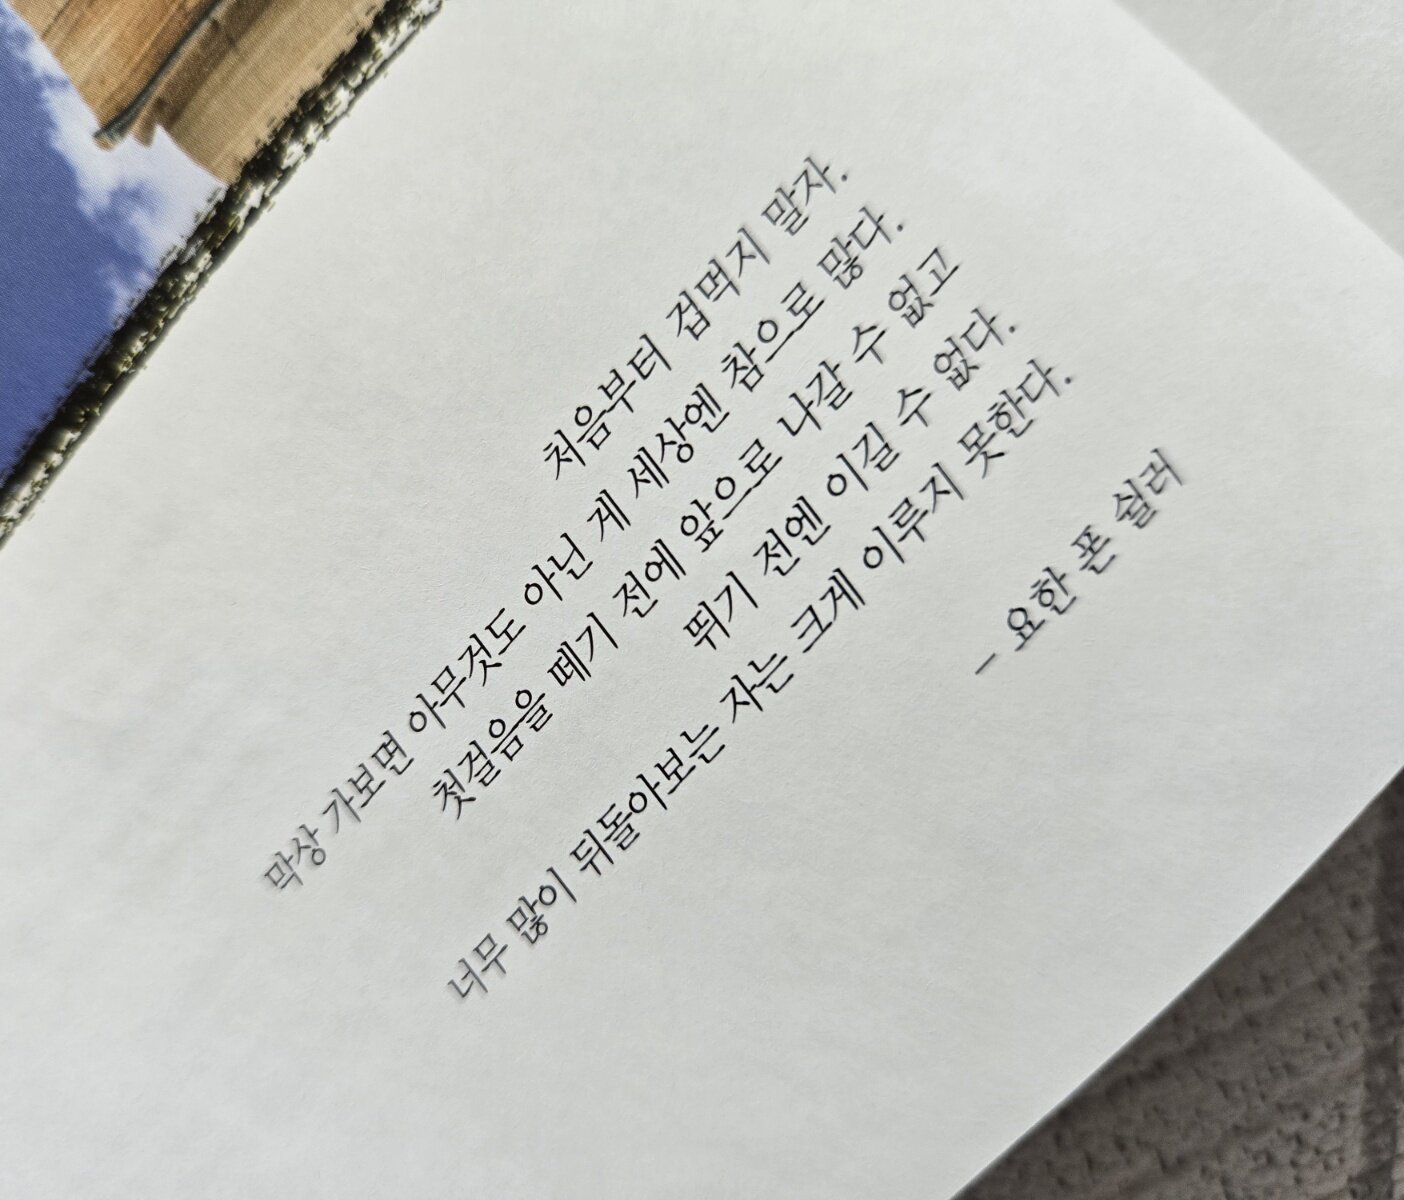 처음부터 겁먹지 말자.
막상 가보면 아무것도 아닌 게 세상엔 참으로 많다.
첫걸음을 떼기 전에 앞으로 나갈 수 없고
뛰기 전엔 이길 수 없다.
너무 많이 뒤돌아보는 자는 크게 이루지 못한다.
– 요한 폰 쉴러